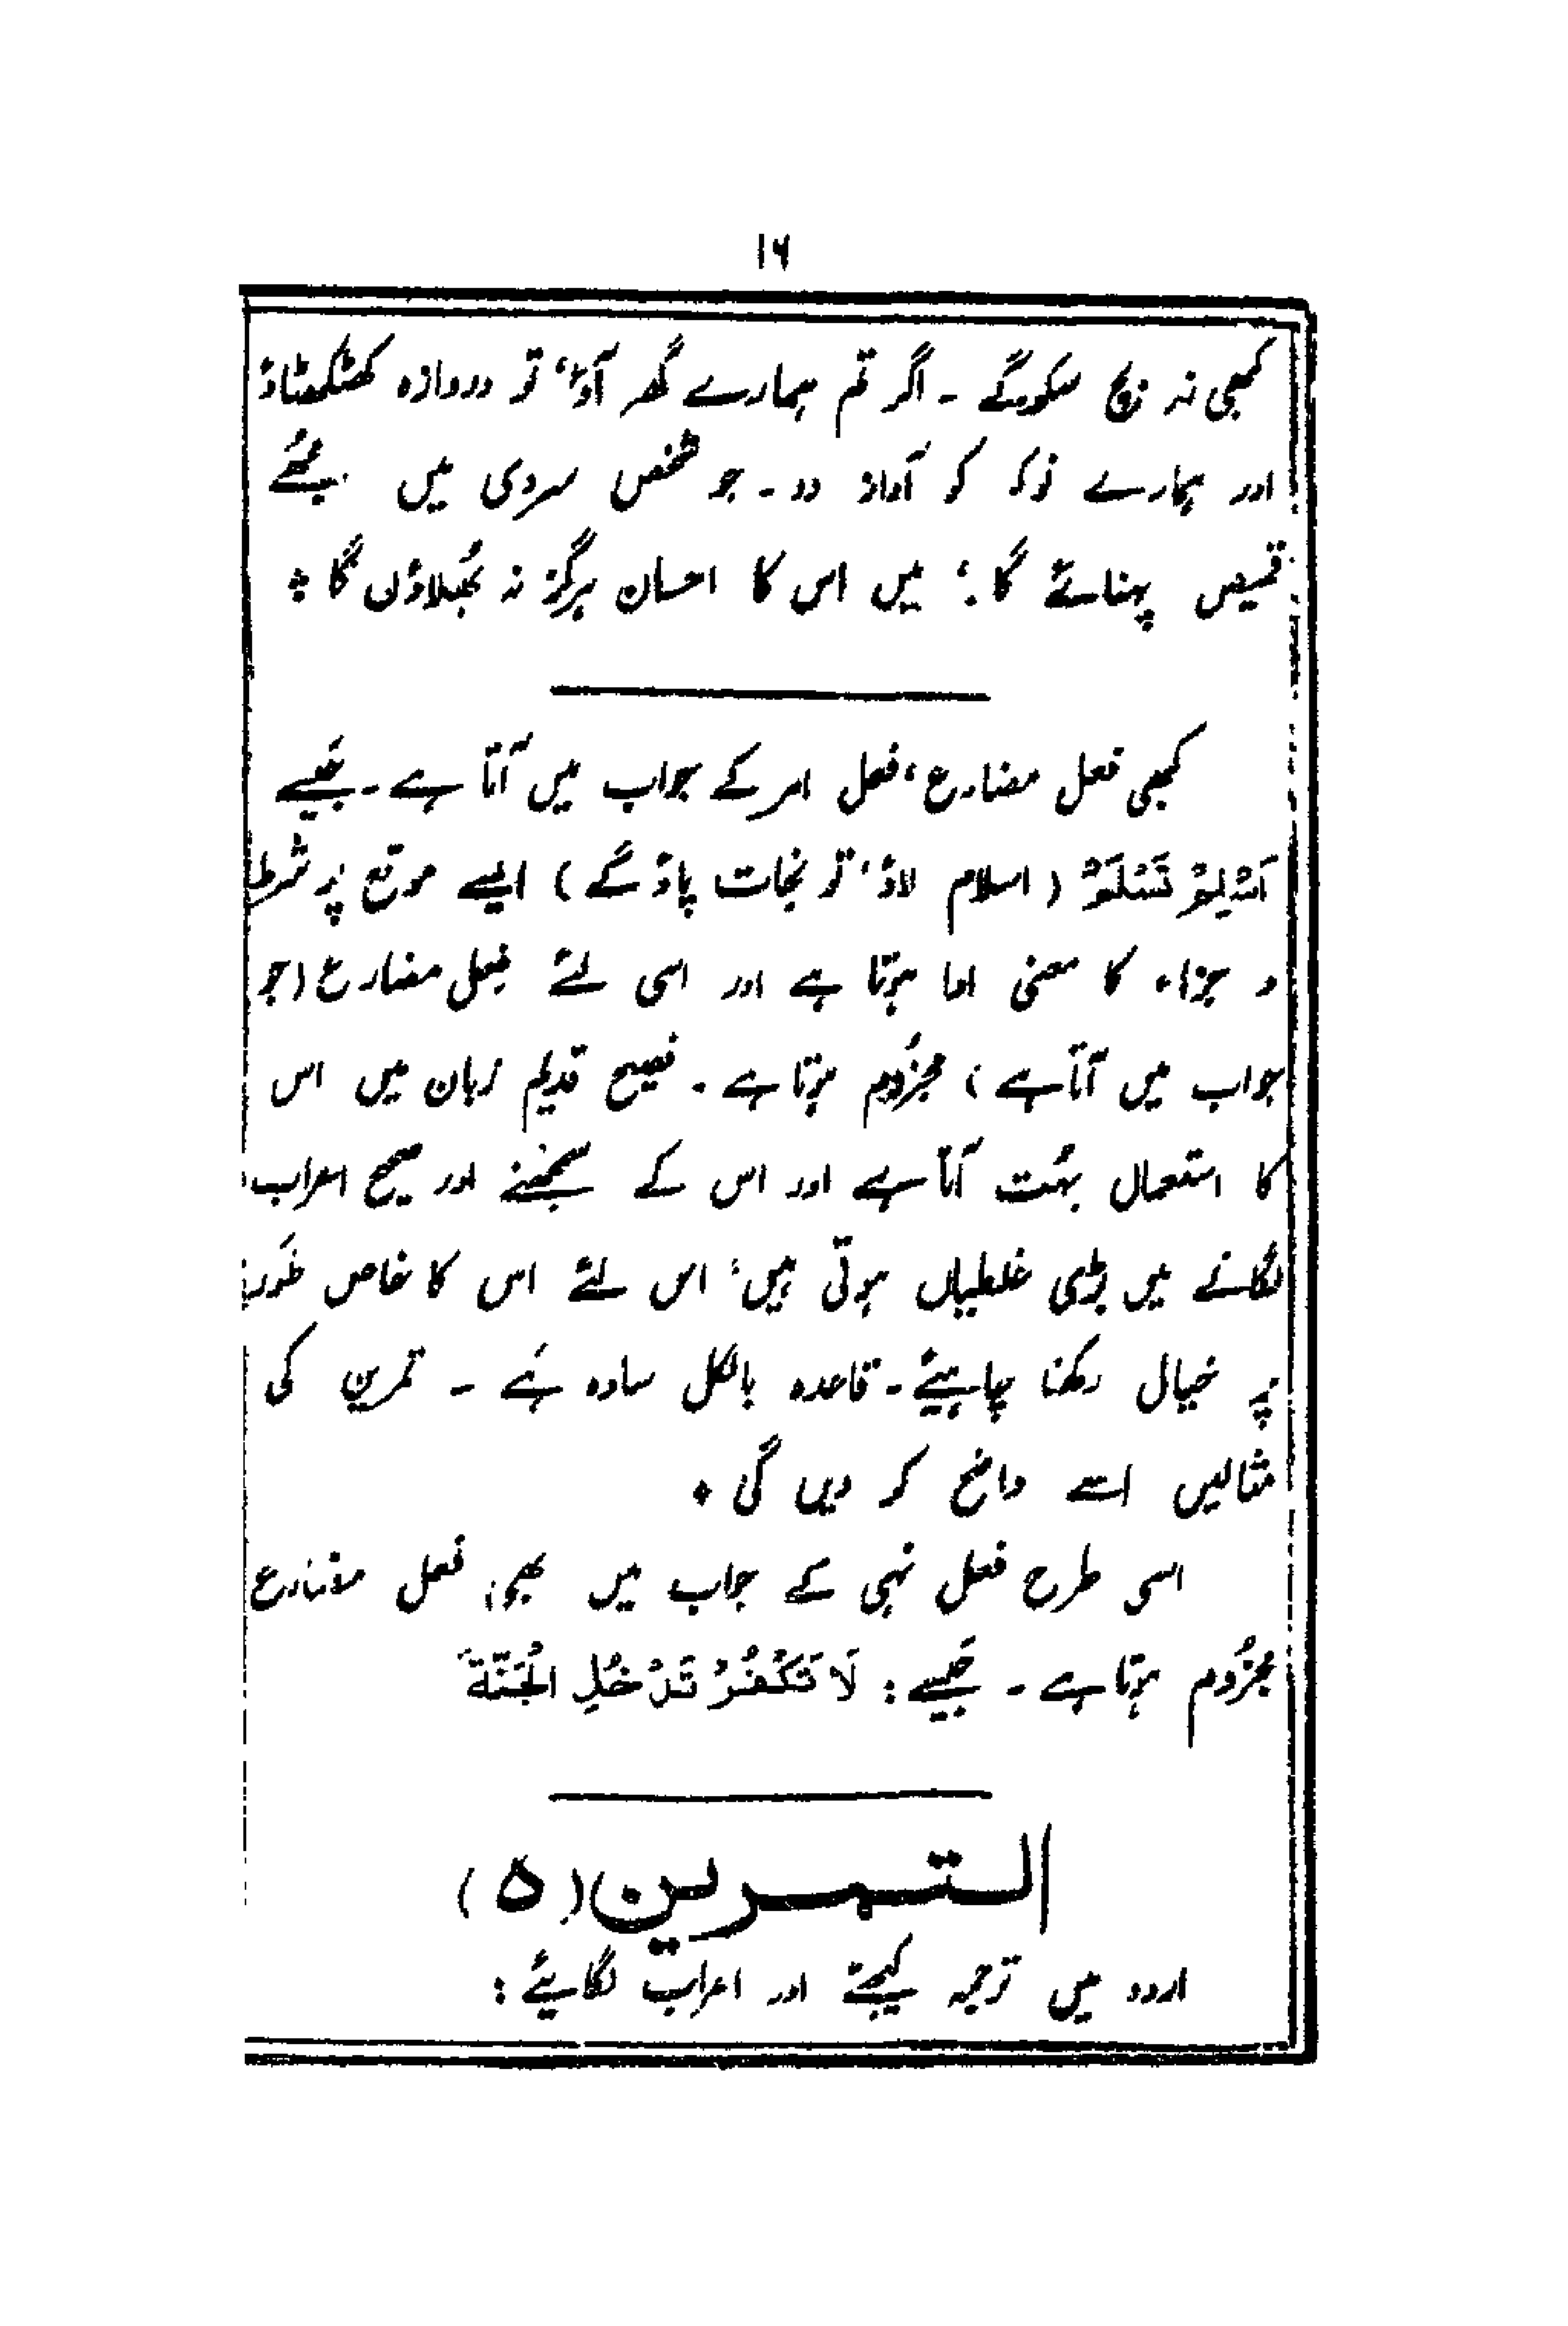 ۱۶
کبھی نہ بچ سکو گے ۔ اگر تم ہمارے گھر آؤ، تو دروازہ کھٹکھٹاؤ
اور ہمارے نوکر کو آواز دو ۔ جو شخص سردی میں مجھے
قمیص پہنائے گا، میں اس کا احسان ہرگز نہ بھُلاؤں گا ٭
کبھی فعل مضارع، فعل امر کے جواب میں آتا ہے ۔ جَیسے
اَسْلِمْ تَسْلَمْ (اسلام لاؤ، تو نجات پاؤ گے) ایسے موقع پر شرط
و جزاء کا معنی ادا ہوتا ہے اور اسی لئے فعل مضارع (جو
جواب میں آتا ہے) مجزُوم ہوتا ہے ۔ فصیح قدیم زبان میں اس
کا استعمال بہُت آتا ہے اور اس کے سمجھنے اور صحیح اعراب
لگانے میں بڑی غلطیاں ہوتی ہیں، اس لئے اس کا خاص طَور
پر خیال رکھنا چاہیئے ۔ قاعدہ بالکل سادہ ہَے ۔ تمرین کی
مثالیں اسے واضح کر دیں گی ٭
اسی طرح فعل نہی کے جواب میں بھی فعل مضارع
مجزُوم ہوتا ہے ۔ جَیسے : لَا تَكْفُرْ تَدْخُلِ الْجَنَّةَ
التمرین (۵)
اردو میں ترجمہ کیجئے اور اعراب لگایئے :